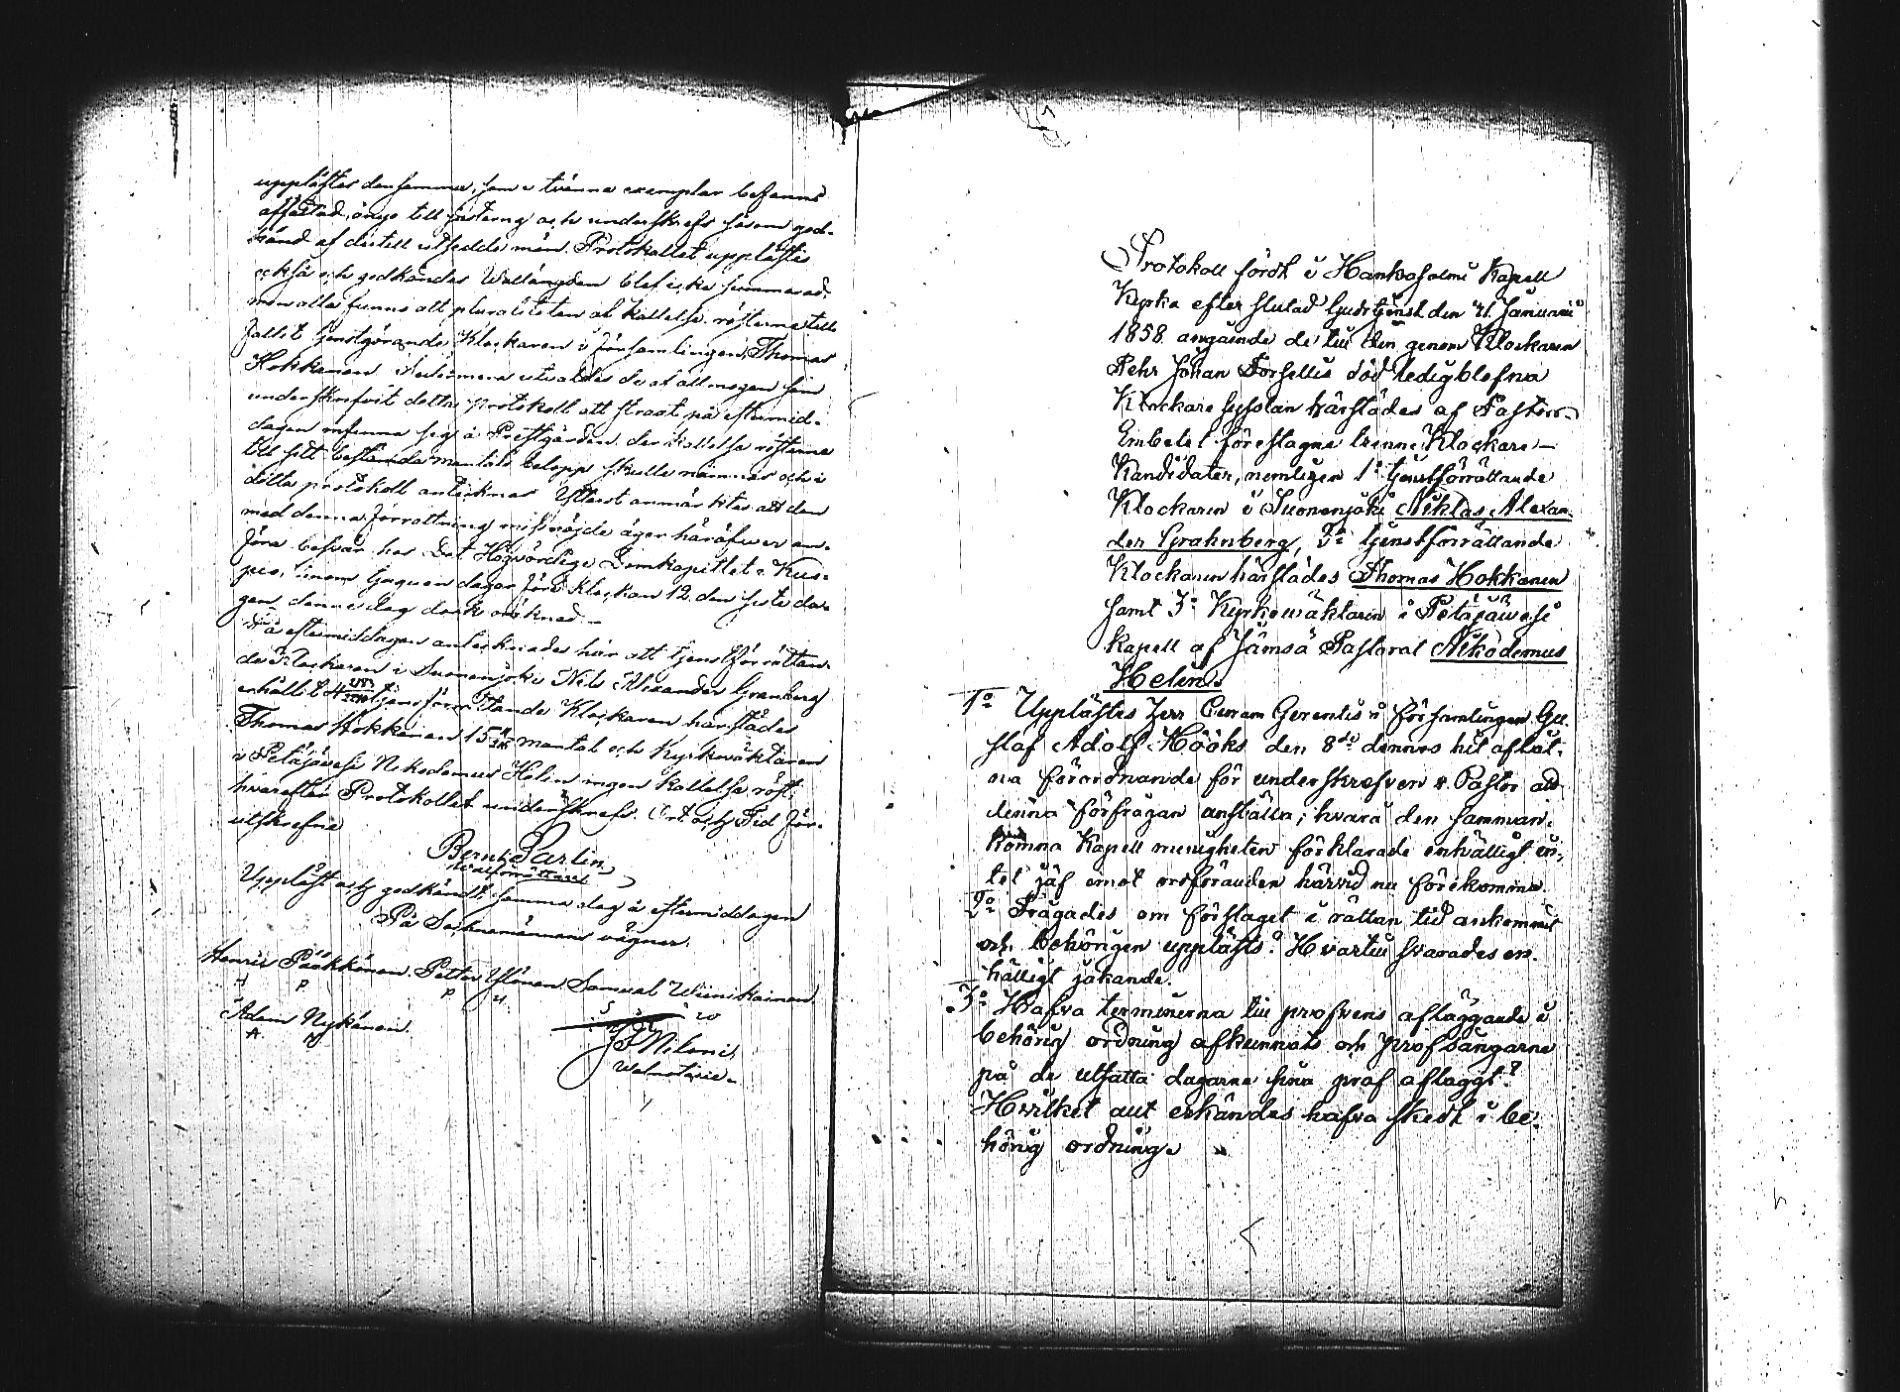 uppläster densamma, som i tvenne exemplar befanns
affattad, ånyo till justering och underskrefs såsom god-
känd af dertill utsedde män. Protokollet upplästes
också och godkändes Wallängden blef icke summerad,
men alla funno att pluraliteten af kallelse rösterna till-
fallit tjenstgörande Klockaren i församlingen, Thomas
Hokkanen. utvaldes de af allmogen som
underskrifvit detta protokoll att straxt på eftermid-
dagen infinna sig å Prestgården, der kallelse rösterna
till sitt bestämda mantals belopp skulle nämnas och i
detta protokoll antecknas. Ytterst anmärktes att den
med denna förrättning missnöjde äger häröfwer an-
föra besvär hos Det Högvördige Domkapitlet i Kuo-
pio, inom tjugu en dagar före klockan 12. den sista da-
gen, denne dag doch oräknad.—
På eftermiddagen antecknades här att tjenstförrättan-
de Klockaren i Suonenjoki Nils Alexander Granberg
erhållit tjenstförrättande Klockaren härstädes
Thomas Hokkanen 15 mantal och Kyrkwäktaren
i Petäjävesi Nikodemus Helin ingen kallelse röst;
hvarefter Protokollet underskrefs. Ort och Tid för-
utskrefne
Bernt Sarlin
Walförrättare
Uppläst och godkändt, samma dag å eftermiddagen
På Sockenmännens vägnar.
Henric Pääkkönen. Petter Ylönen Samuel Wiinikainen
H P P Y S W
Adam Nykänen.
A N
Walnotarie.
Protokoll fördt i Hankasalmi Kapell
Kyrka efter slutad Gudstjenst den 31. Januarii
1858. angående de till den, genom Klockaren
Pehr Johan Forsellii död ledigblefna
Klockare sysslan härstädes af Pastors-
Embetet föreslagne trenne Klockare—
Kandidater, nemligen 1o tjenstförrättande
Klockaren i Suonenjoki Niklas Alexan-
der Grahnberg, 2o tjenstförrättande
Klockaren härstädes Thomas Hokkanen
samt 3o Kyrkowäktaren i Petäjäwesi
Kapell af Jämsä Pastorat Nikodemus
Helin.
1o Upplästes Herr Curam Gerentis i församlingen Gu-
staf Adolf Hööks den 8de dennes hit aflåt-
na förordnande för underskrefven v. Pastor att
denna förfrågan anställa; hvarå den samman-
komna Kapell menigheten förklarade enhälligt in-
tet jäf emot ordföranden härvid nu förekomma.
2o Frågades om förslaget i rättan tid ankommit
och behörigen upplästs? Hvartill svarades en-
hälligt jakande.
3o Hafva terminerna till profvens afläggande i
behörig ordning afkunnats och profsångarne
på de utsatta dagarne sina prof aflaggt?
Hvilket allt erkändes hafva skedt i be-
hörig ordning.